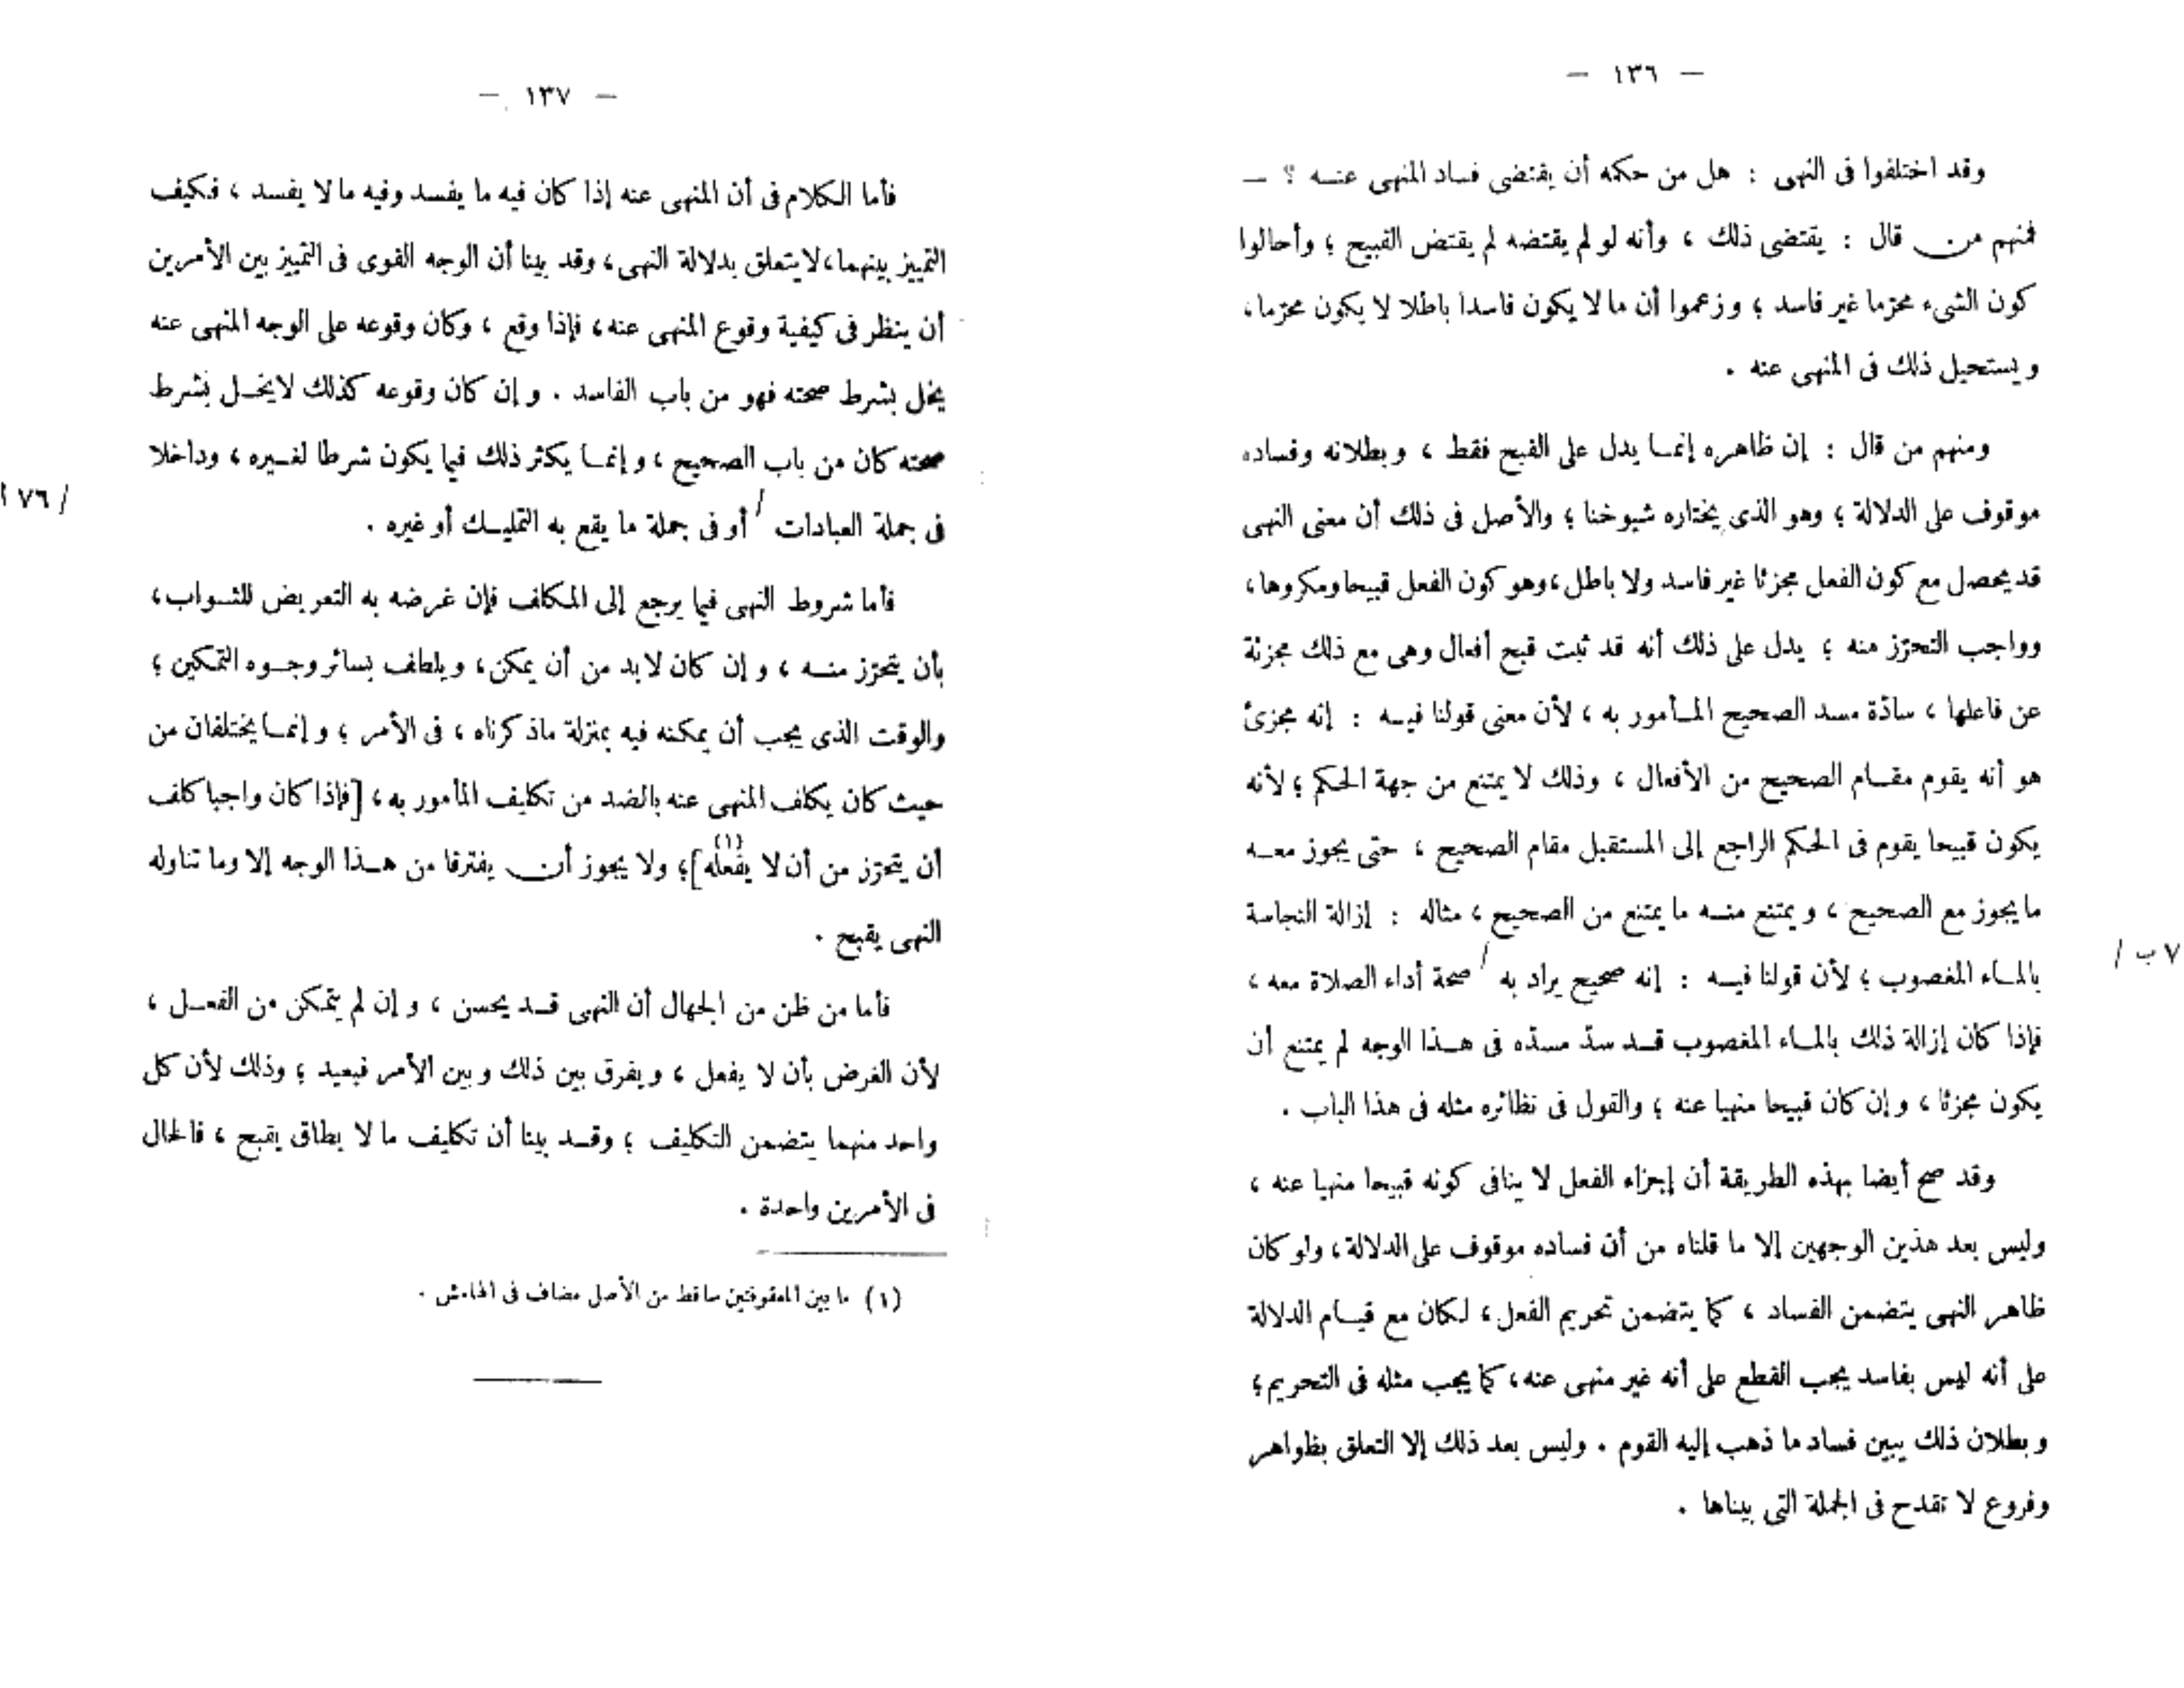 — ١٣٦ —
وقد اختلفوا فى النهى : هل من حكمه أن يقتضى فساد المنهى عنـه ؟ —
فمنهم من قال : يقتضى ذلك ، وأنه لو لم يقتضه لم يقتض القبيح ؛ وأحالوا
كون الشىء محرّما غير فاسد ؛ وزعموا أن ما لا يكون فاسدا باطلا لا يكون محرّما ،
ويستحيل ذلك فى المنهى عنه .
ومنهم من قال : إن ظاهره إنمـا يدل على القبح فقط ، وبطلانه وفساده
موقوف على الدلالة ؛ وهو الذى يختاره شيوخنا ؛ والأصل فى ذلك أن معنى النهى
قد يحصل مع كون الفعل مجزئا غير فاسد ولا باطل ، وهو كون الفعل قبيحا ومكروها ،
وواجب التحرّز منه ؛ يدل على ذلك أنه قد ثبت قبح أفعال وهى مع ذلك مجزئة
عن فاعلها ، سادّة مسد الصحيح المـأمور به ، لأن معنى قولنا فيـه : إنه مجزئ
هو أنه يقوم مقـام الصحيح من الأفعال ، وذلك لا يمتنع من جهة الحكم ؛ لأنه
يكون قبيحا يقوم فى الحكم الراجع إلى المستقبل مقام الصحيح ، حتى يجوز معـه
ما يجوز مع الصحيح ، ويمتنع منـه ما يمتنع من الصحيح ، مثاله : إزالة النجاسة
بالمـاء المغصوب ؛ لأن قولنا فيـه : إنه صحيح يراد به / صحة أداء الصلاة معه ،
٧ ب /
فإذا كان إزالة ذلك بالمـاء المغصوب قـد سدّ مسدّه فى هـذا الوجه لم يمتنع أن
يكون مجزئا ، وإن كان قبيحا منهيا عنه ؛ والقول فى نظائره مثله فى هذا الباب .
وقد صح أيضا بهذه الطريقة أن إجزاء الفعل لا ينافى كونه قبيحا منهيا عنه ،
وليس بعد هذين الوجهين إلا ما قلناه من أن فساده موقوف على الدلالة ، ولو كان
ظاهر النهى يتضمن الفساد ، كما يتضمن تحريم الفعل ، لكان مع قيـام الدلالة
على أنه ليس بفاسد يجب القطع على أنه غير منهى عنه ، كما يجب مثله فى التحريم ؛
وبطلان ذلك يبين فساد ما ذهب إليه القوم . وليس بعد ذلك إلا التعلق بظواهر
وفروع لا تقدح فى الجملة التى بيناها .
— ١٣٧ —
فأما الكلام فى أن المنهى عنه إذا كان فيه ما يفسد وفيه ما لا يفسد ، فكيف
التمييز بينهما ، لا يتعلق بدلالة النهى ، وقد بينا أن الوجه القوى فى التمييز بين الأمرين
أن ينظر فى كيفية وقوع المنهى عنه ، فإذا وقع ، وكان وقوعه على الوجه المنهى عنه
يخل بشرط صحته فهو من باب الفاسد . وإن كان وقوعه كذلك لا يخـل بشرط
صحته كان من باب الصحيح ، وإنمـا يكثر ذلك فيما يكون شرطا لغـيره ، وداخلا
فى جملة العبادات / أو فى جملة ما يقع به التمليـك أو غيره .
/ ٧٦ ا
فأما شروط النهى فيما يرجع إلى المكلف فإن غرضه به التعريض للثـواب ،
بأن يتحرّز منـه ، وإن كان لا بد من أن يمكن ، ويلطف بسائر وجـوه التمكين ؛
والوقت الذى يجب أن يمكنه فيه بمنزلة ما ذكرناه ، فى الأمر ؛ وإنمـا يختلفان من
حيث كان يكلف المنهى عنه بالضد من تكليف المأمور به ، [فإذا كان واجبا كلف
أن يتحرّز من أن لا يفعله](١)؛ ولا يجوز أن يفترقا من هـذا الوجه إلا وما تناوله
النهى يقبح .
فأما من ظن من الجهال أن النهى قـد يحسن ، وإن لم يتمكن من الفعـل ،
لأن الغرض بأن لا يفعل ، ويفرق بين ذلك وبين الأمر فبعيد ؛ وذلك لأن كل
واحد منهما يتضمن التكليف ؛ وقـد بينا أن تكليف ما لا يطاق يقبح ، فالحال
فى الأمرين واحدة .
(١) ما بين المعقوفتين ساقط من الأصل مضاف فى الهامش .